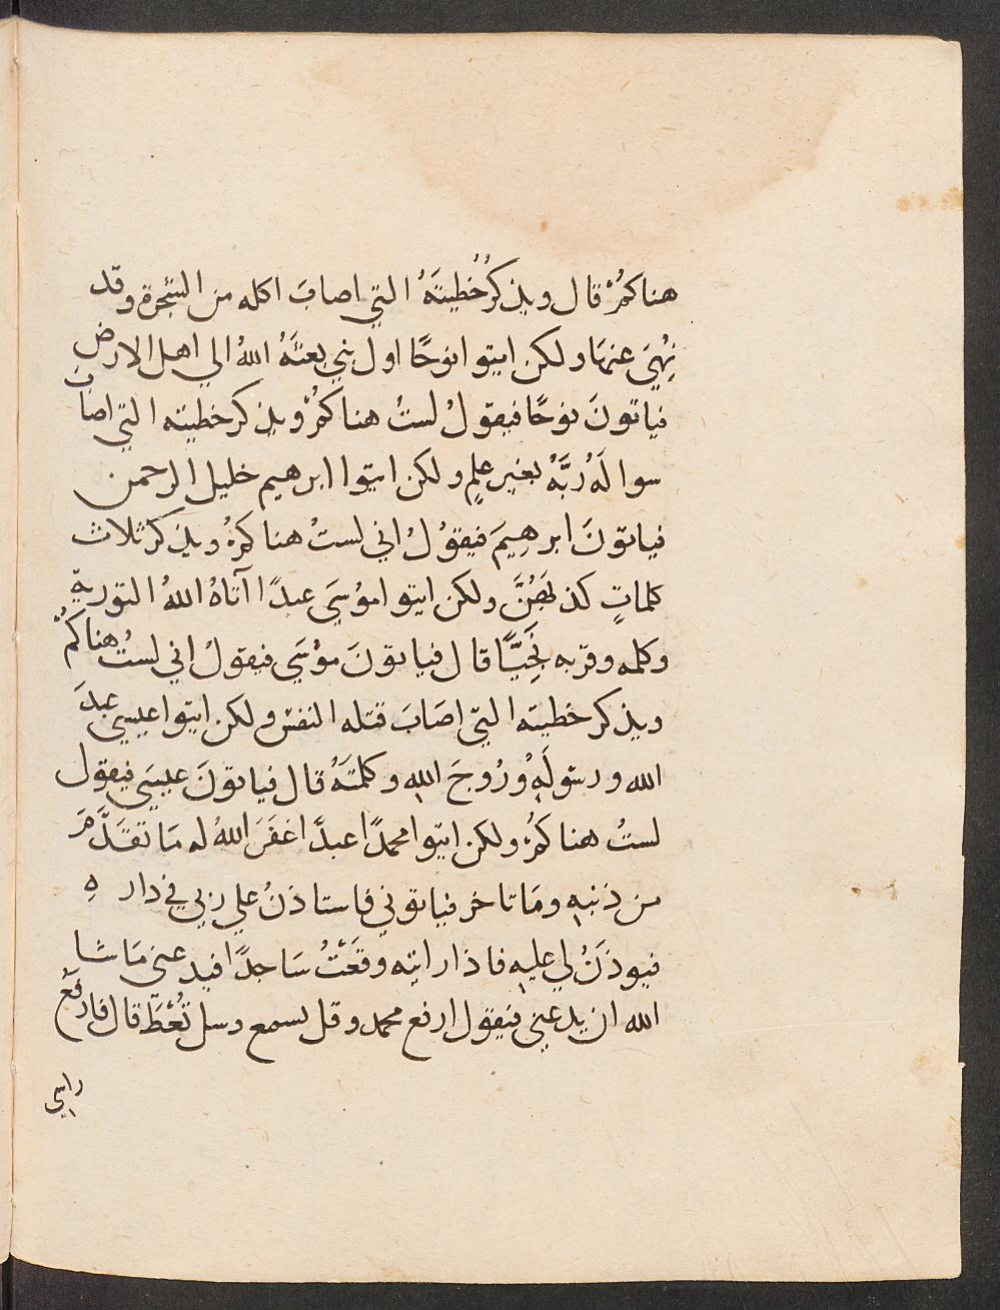 هناكُمْ قال ويذكرُ خُطيتَهُ التي اصابَ اكله من الشجرة وقد
نُهِيَ عنهَا ولكن ايتوا نوحًا اول نبي بعثَهُ اللهُ الي اهل الارض
فياتونَ نوحًا فيقولُ لستُ هناكُمْ ويذكر خطيته التي اصابَ
سوالَهُ ربَّهُ بغير علمٍ ولكن ايتوا ابرهيم خليل الرحمن
فياتونَ ابرهِيمَ فيقوُلُ اني لستُ هناكمُ ويذكر ثلاث
كلماتٍ كذبَهُنَّ ولكن ايتوا موُسَي عبدًا آتاهُ اللهُ التورية
وكلمه وقربه نَجِيًّا قال فياتونَ موُسَي فيقولُ اني لستُ هناكُمْ
ويذكر خطيته التي اصَابَ قتله النفس ولكن ايتوا عيسي عبدَ
الله ورسولَهُ ورُوحَ اللهِ وكلمتَهُ قال فياتونَ عيسَي فيقول
لستُ هناكمُ ولكن ايتوا محمدًا عبدًا غفَرَ اللهُ له مَا تقدَّمَ
من ذنبهِ ومَا تاخر فياتوني فاستاذنُ علي ربي في داره
فيوذَنُ لي عليهِ فاذا رايته وقَعْتُ سَاجدًا فيدعني مَا شا
الله ان يدعني فيقول ارفع محمد وقل يسمع وسل تُعْطَ قال فارفَعُ
راسي